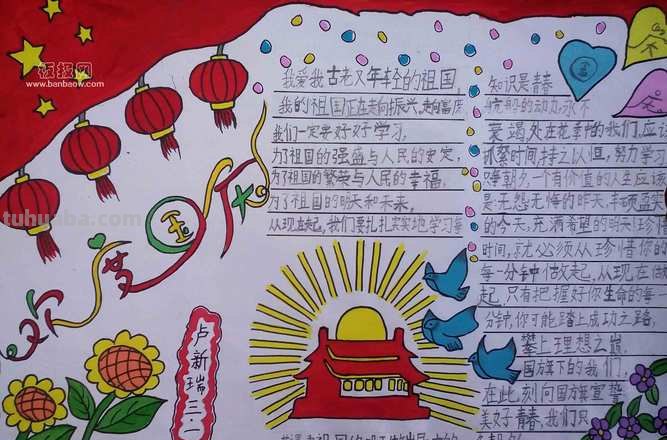 板报网
www.banbaow.com
tuhuaba.com
欢度国庆
卢新瑞三二
我爱我古老又年轻的祖国,
我的祖国正在走向振兴,走向富庶
我们一定要好好学习,
为了祖国的强盛与人民的安定,
为了祖国的繁荣与人民的幸福,
为了祖国的明天和未来,
从现在起,我们要扎扎实实地学习每
知识是青春
的动力,永不
衰竭处在花季的我们,应
抓紧时间,持之以恒,努力学习
争朝夕,一个有价值的人生应该
是无怨无悔的昨天,丰硕盈实
的今天,充满希望的明天!珍惜
时间,就必须从珍惜你的
每一分钟做起,从现在做
起,只有把握好你生命的每
分钟,你可能踏上成功之路,
攀上理想之巅,
国旗下的我们,
在此刻向国旗宣誓
美好青春,我们只